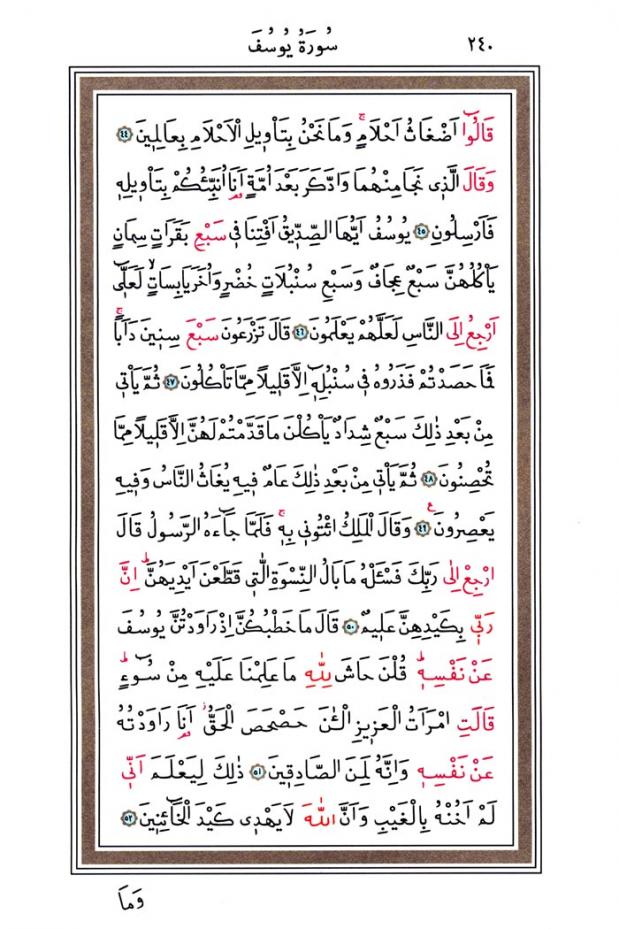 ٢٤٠
سُورَةُ يُوسُفَ
قَالُٓوا اَضْغَاثُ اَحْلَامٍۚ وَمَا نَحْنُ بِتَأْو۪يلِ الْاَحْلَامِ بِعَالِم۪ينَ ﴿٤٤﴾
وَقَالَ الَّذ۪ي نَجَا مِنْهُمَا وَادَّكَرَ بَعْدَ اُمَّةٍ اَنَا۬ اُنَبِّئُكُمْ بِتَأْو۪يلِه۪
فَاَرْسِلُونِ ﴿٤٥﴾ يُوسُفُ اَيُّهَا الصِّدّ۪يقُ اَفْتِنَا ف۪ي سَبْعِ بَقَرَاتٍ سِمَانٍ
يَأْكُلُهُنَّ سَبْعٌ عِجَافٌ وَسَبْعِ سُنْبُلَاتٍ خُضْرٍ وَاُخَرَ يَابِسَاتٍۙ لَعَلّ۪ٓي
اَرْجِعُ اِلَى النَّاسِ لَعَلَّهُمْ يَعْلَمُونَ ﴿٤٦﴾ قَالَ تَزْرَعُونَ سَبْعَ سِن۪ينَ دَاَبًاۚ
فَمَا حَصَدْتُمْ فَذَرُوهُ ف۪ي سُنْبُلِه۪ٓ اِلَّا قَل۪يلًا مِمَّا تَأْكُلُونَ ﴿٤٧﴾ ثُمَّ يَأْت۪ي
مِنْ بَعْدِ ذٰلِكَ سَبْعٌ شِدَادٌ يَأْكُلْنَ مَا قَدَّمْتُمْ لَهُنَّ اِلَّا قَل۪يلًا مِمَّا
تُحْصِنُونَ ﴿٤٨﴾ ثُمَّ يَأْت۪ي مِنْ بَعْدِ ذٰلِكَ عَامٌ ف۪يهِ يُغَاثُ النَّاسُ وَف۪يهِ
يَعْصِرُونَ ﴿٤٩﴾ ع وَقَالَ الْمَلِكُ ائْتُون۪ي بِه۪ۚ فَلَمَّا جَٓاءَهُ الرَّسُولُ قَالَ
ارْجِعْ اِلٰى رَبِّكَ فَسْـَٔلْهُ مَا بَالُ النِّسْوَةِ الّٰت۪ي قَطَّعْنَ اَيْدِيَهُنَّۜ اِنَّ
رَبّ۪ي بِكَيْدِهِنَّ عَل۪يمٌ ﴿٥٠﴾ قَالَ مَا خَطْبُكُنَّ اِذْ رَاوَدْتُنَّ يُوسُفَ
عَنْ نَفْسِه۪ۜ قُلْنَ حَاشَ لِلّٰهِ مَا عَلِمْنَا عَلَيْهِ مِنْ سُٓوءٍۜ
قَالَتِ امْرَاَتُ الْعَز۪يزِ الْـٰٔنَ حَصْحَصَ الْحَقُّۘ اَنَا۬ رَاوَدْتُهُ
عَنْ نَفْسِه۪ وَاِنَّهُ لَمِنَ الصَّادِق۪ينَ ﴿٥١﴾ ذٰلِكَ لِيَعْلَمَ اَنّ۪ي
لَمْ اَخُنْهُ بِالْغَيْبِ وَاَنَّ اللّٰهَ لَا يَهْد۪ي كَيْدَ الْخَٓائِن۪ينَ ﴿٥٢﴾
وَمَٓا